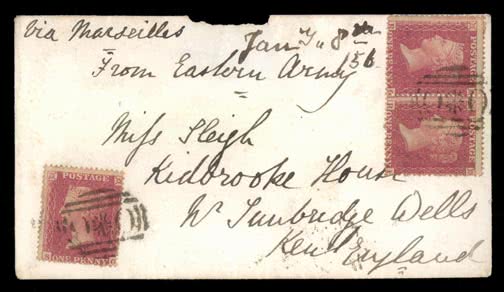 Via Marseilles
Jany. 8th
/56
From Eastern Army
Miss Sleigh
Kidbrooke House
Nr Tunbridge Wells
Kent England
POSTAGE
ONE PENNY